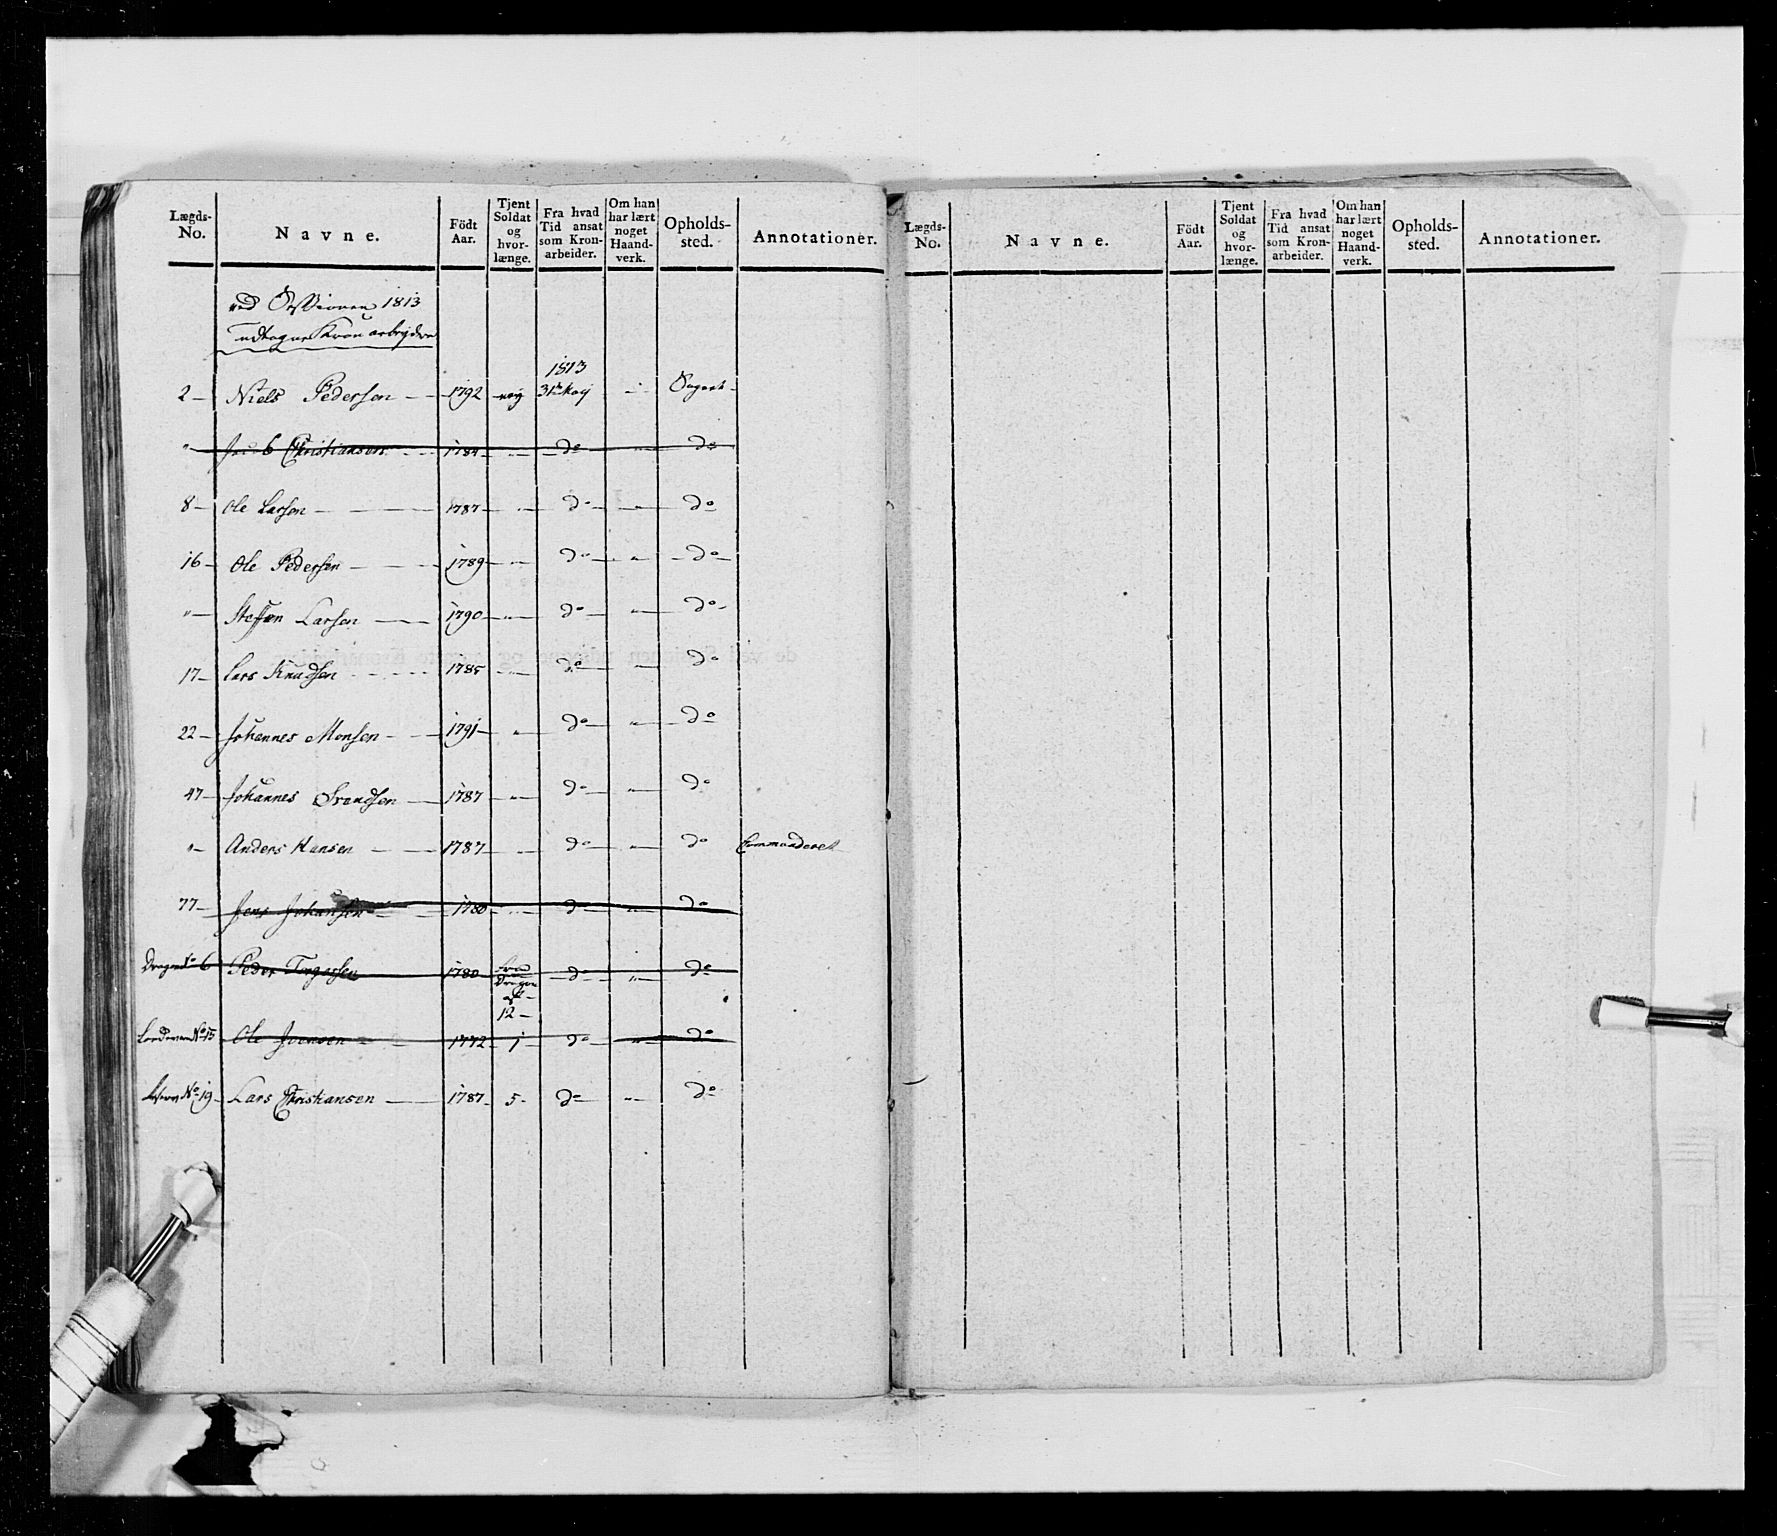 Lægds-No. Navne. Födt Aar. Tjent Soldat og hvor-længe. Fra hvad Tid ansat som Kron-arbeider. Om han har lært noget Haand-verk. Opholds-sted. Annotationer.
ved Sessionen 1813
udtagne Kron arbeydere
1813
2 — Niels Pedersen — 1792 ney 31te Maij " Sognet
" — Jacob Christiansen — 1784 " do " do
8 — Ole Larsen — 1787 — " do — " — do
16 — Ole Pedersen — 1789 — " do — " — do —
" — Steffen Larsen — 1790 — " — do — " — do —
17 — Lars Knudsen — 1785 " — do — " — do
22 — Johannes Monsen — 1791 — " do — " — do
47 — Johannes Svendsen — 1787 — " — do — " — do
" — Anders Hansen — 1787 — " — do — " — do Commanderet
77 — Jens Johansen — 1780 " — do — " — do
No 6 Peder Torgersen 1780 fra Dragon
12 — do — " — do
No 15 Ole — 1772 — 1 — do — " — do
No 19 — Lars Christiansen — 1787 — 5 — do — " — do
Lægds-No. Navne. Födt Aar. Tjent Soldat og hvor-længe. Fra hvad Tid ansat som Kron-arbeider. Om han har lært noget Haand-verk. Opholds-sted. Annotationer.